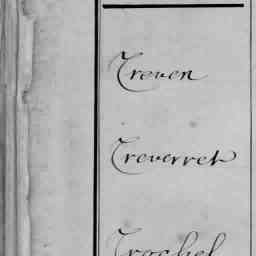 Treven
Treverret
Trochel